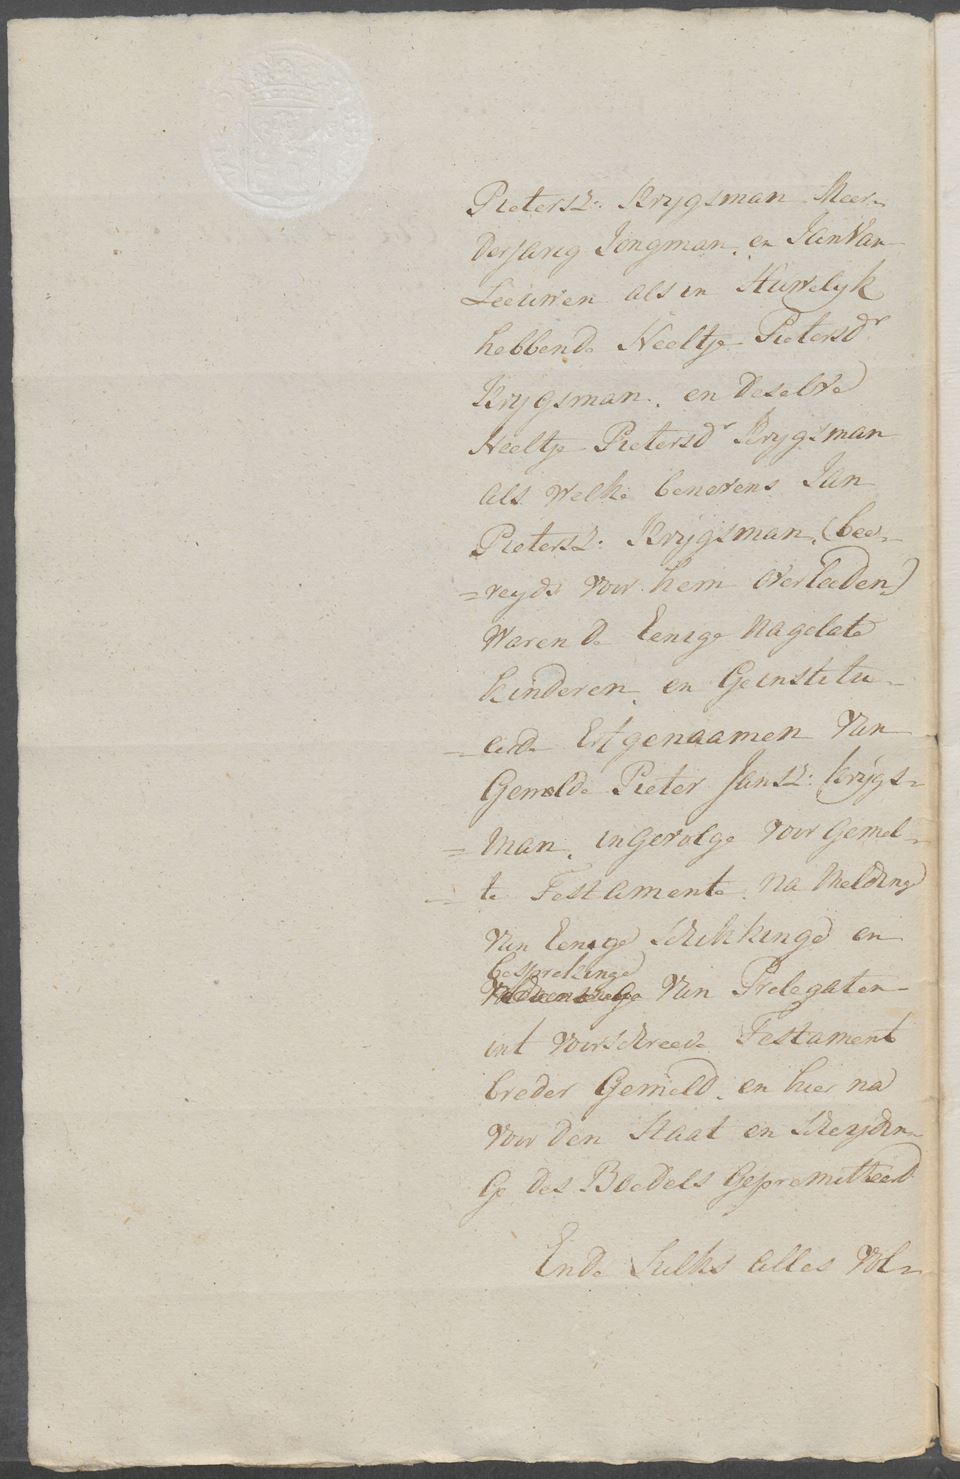 Pietersz: Krygsman Meer-
derjarig Jongman, en Jan Van
Leeuwen als in Huwelyk
hebbende Neeltje Pietersdr
Krygsman, en deselve
Neeltje Pietersdr Krygsman
als welke benevens Jan
Pietersz: Krygsman, (bee-
=reyds voor hem overleeden)
waren de Eenige nagelate
kinderen, en Geinstitu-
eerde Erfgenaamen van
Gemelde Pieter Jansz: Krygs-
=man, ingevolge voor gemel-
te Testamente, na melding
van Eenige schikkinge en
besprekinge
van Prelegaten
int voorschreeve Testament
breder Gemeld, en hier na
voor den Staat en scheydin-
ge des Boedels Gepremitteerd
Ende sulks alles vol-